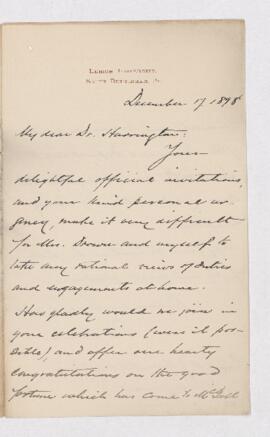 Lehigh University,
South Bethlehem, Pa.
December 17 1898
My dear Dr. Harrington:
Your
delightful official invitations,
and your kind personal ur-
gency, make it very difficult
for Mrs. Drown and myself to
take any rational views of duties
and engagements at home.
How gladly would we join in
your celebrations (were it pos-
sible), and offer our hearty
congratulations on the good
fortune which has come to McGill